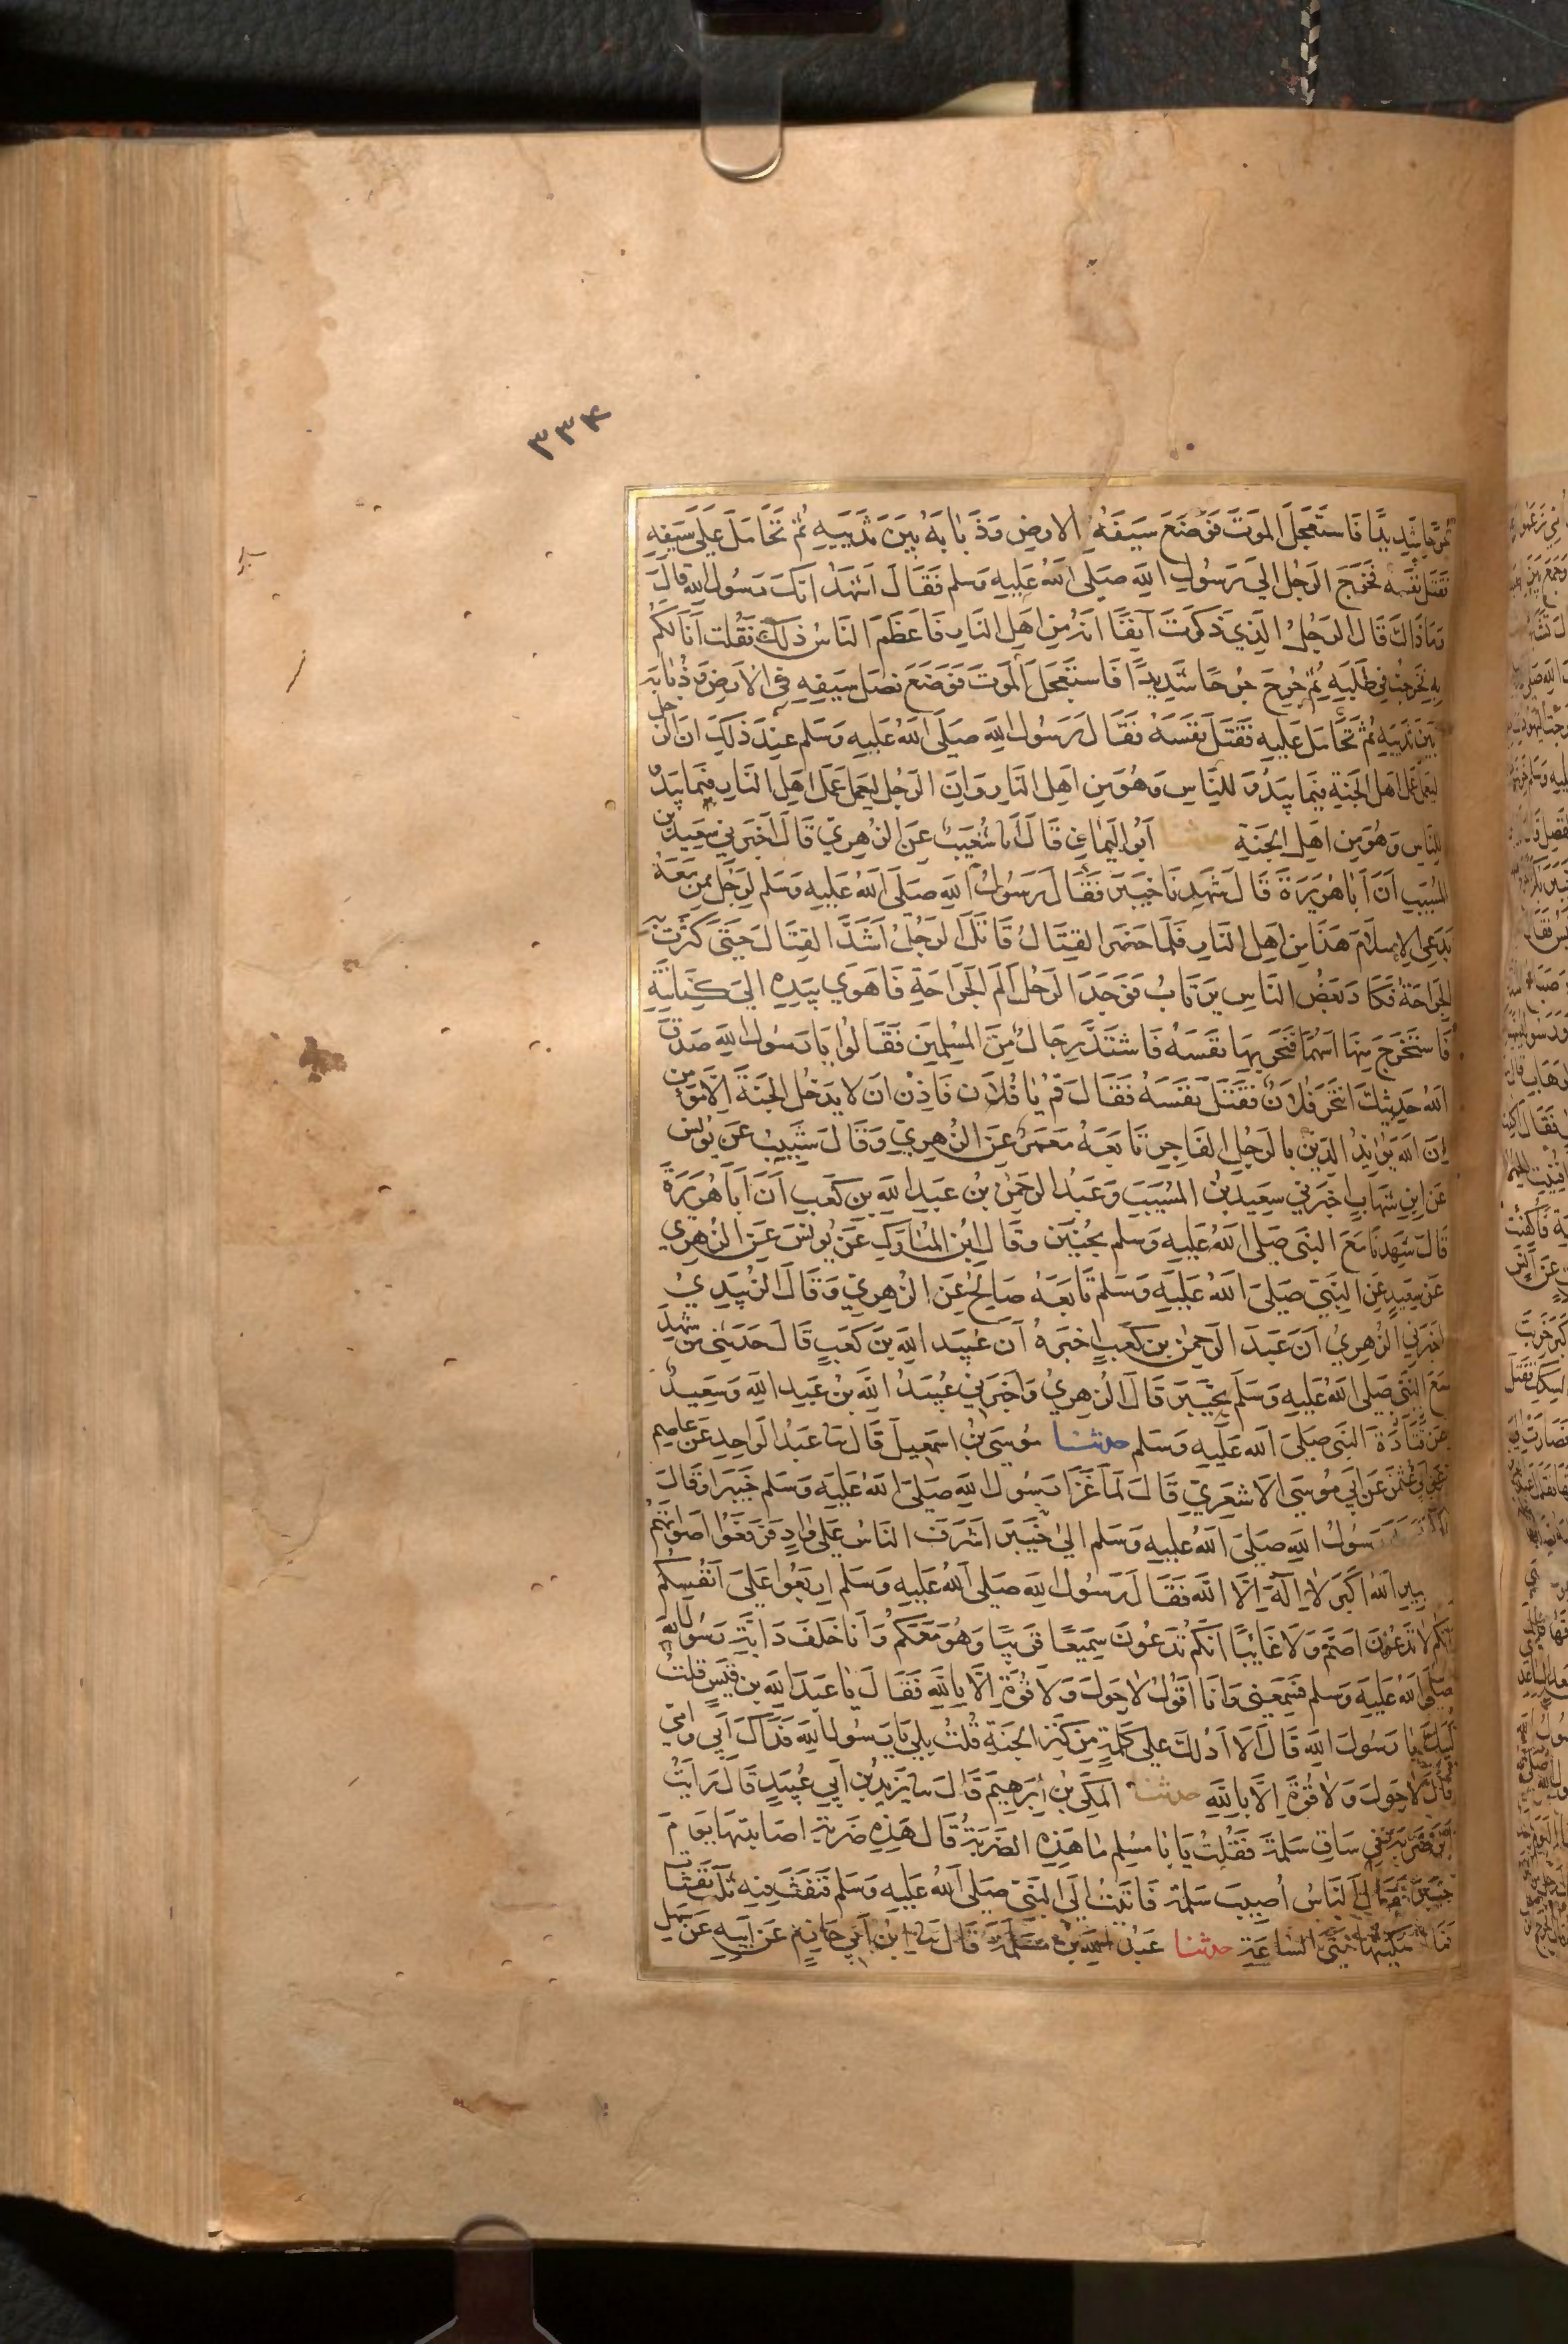 ٣٣٤
شديدًا فَاستَعجَلَ المَوتَ فَوَضَعَ سَيفَهُ الارضِ وَذُبَابَهُ بَينَ ثَديَيهِ ثُمَّ تَحَامَلَ عَلَى سَيفِهِ
فَقَتَلَ نَفسَهُ فَخَرَجَ الرَجُلُ اِلى رَسُولِ اللهِ صَلى اللهُ عَليهِ وَسَلم فَقَالَ اَشهَدُ اَنَّكَ رَسُول اللهِ قالَ
وَمَا ذَاكَ قَالَ الرَجُلُ الذِي ذَكَرتَ آنِفًا اَنَّهُ مِن اهلِ النَارِ فَاعَظَمَ النَاسُ ذلِكَ فَقُلت اَنَا لَكُم
بِهِ فَخَرَجتُ فِي طَلَبِهِ ثُمَّ جُرِحَ جُرحًا شَدِيدًا فَاستَعجَلَ المَوتَ فَوَضَعَ نَصلَ سَيفِهِ فِي الاَرضِ وَذُبَابَهُ
بَينَ ثَديَيهِ ثُمَّ تَحَامَلَ عَليهِ فَقَتَلَ نَفسَهُ فقَالَ رَسُول اللهِ صَلَى اللهُ عَليهِ وَسَلم عِندَ ذلِكَ ان الرجل
لَيَعمَل عَمَلَ اَهل الجَنةِ فِيمَا يَبدُو للنَّاسِ وَهُوَ مِن اَهلِ النَارِ وَاِنَ الرَجُل لَيَعمل عَمَل اَهلِ النَارِ فِيمَا يَبدُو
للنَاسِ وَهُوَ مِن اهلِ الجَنةِ حدثنا اَبُو اليَمَانِ قَالَ انا شُعَيبٌ عَن الزُهرِيّ قَالَ اَخبَرَنِي سَعِيد بن
المُسَيبِ اَنَّ اَبَا هُرَيرَةَ قَالَ شَهِدنَا خَيبَرَ فَقَالَ رَسُولُ اللهِ صَلَى اللهُ عَليهِ وَسَلم لِرَجُلٍ مِمَن مَعَهُ
يَدعِي الاِسلَامَ هَذَا مِن اَهلِ النَارِ فَلَمَا حَضَرَ القِتَالُ قَاتَلَ الرَجُلُ اَشَدَّ القِتَالَ حَتَى كَثُرَت بِهِ
الجَرَاحَةُ فَكَادَ بَعَضُ النَاسِ يَرتَابُ فَوَجَدَ الرَجُلُ اَلَمَ الجَرَاحَةِ فَاهوَى بِيَدِهِ اِلَى كِنَانَتِهِ
فَاستَخرَجَ مِنهَا اَسهُمًا فَنَحَرَ بِهَا نَفسَهُ فَاشتَدَّ رِجَالٌ مِنَ المُسلِمِينَ فَقَالُوا يَا رَسُول اللهِ صَدَقَ
اللهُ حَدِيثَكَ انتَحَرَ فلَانٌ فَقَتَلَ نَفسَهُ فَقَالَ قُم يَا فُلَان فَاذِن اَن لا يَدخُل الجَنَةَ اِلَّا مُؤمن
اِنَّ اللهَ يُؤَيّدُ الدِينَ بِالرَجُلِ الفَاجِرِ تَابَعَهُ مَعمَرٌ عَنَ الزُهرِيّ وَقَالَ شَبِيبٌ عَن يُونُس
عَن اِبنِ شِهَابٍ اَخبَرَنِي سَعِيدُ بنُ المُسَيبَ وَعَبدُ الرَحمٰنِ بنُ عَبدِ اللهِ بنِ كَعبٍ اَنَّ اَبَا هُرَيرَةَ
قَالَ شَهِدنَا مَعَ النَبِي صَلى اللهُ عَليهِ وَسَلم بِحُنَين وقَالَ ابنُ المبَارَكِ عَن يُونُسَ عَنِ الزُهرِي
عَن سَعِيدٍ عَنِ النَّبِيّ صَلَى اللهُ عَليهِ وَسَلم تَابَعَهُ صَالِحٌ عَنِ الزُهرِيّ وَقَالَ الزُبَيدِيُ
اَخبَرَنِي الزُهرِيُ اَنَّ عَبدَ الرَحمٰنِ بنِ كَعبٍ اَخبَرَهُ اَن عُبَيد اللهِ بنَ كَعَبٍ قَالَ حَدَثَنِي مَن شَهِدَ
مَعَ النَبِيّ صَلى اللهُ عَليهِ وَسَلَم بِخَيبَرَ قَالَ الزُهرِيُ وَاَخبَرَنِي عُبَيدُ اللهِ بنُ عَبدِ اللهِ وَسَعِيدٌ
عَن النَبِي صَلَى اللهُ عَليهِ وَسَلم حدثنا مُوسَى بنُ اسمَعِيلَ قَالَ ثنا عَبدُ الوَاحِدِ عَن عَاصِمٍ
عَن اَبِي عُثمٰنَ عَن اَبِي مُوسَى الاَشعَرِيّ قَالَ لَمَا غَزَا رَسُول اللهِ صَلَى اللهُ عَليهِ وَسَلم خَيبَرَ اَو قَالَ
رَسُولُ اللهِ صَلَى اللهُ عَليهِ وَسَلم اِلى خَيبَرَ اَشرَفَ النَاسُ عَلى وَادٍ فَرَفَعُوا اَصوَاتَهُم
اللهُ اَكبَر لا اِلٰهَ اِلَّا اللهُ فَقَالَ رَسُول اللهِ صَلى اللهُ عَليهِ وَسَلم اِربَعُوا عَلَى اَنفُسِكُم
اِنَّكُم لا تَدعُونَ اَصَمَّ وَلا غَايبًا اِنَّكُم تَدعُونَ سَمِيعًا قَرِيبًا وَهُوَ مَعَكُم وَاَنَا خَلفَ دَابَّةِ رَسُول اللهِ
صَلَى اللهُ عَليهِ وَسَلم فَسَمِعَنِي وَاَنَا اَقُولُ لا حَولَ وَلا قُوَّةَ اِلَّا بِاللهِ فَقَالَ يَا عَبدَ اللهِ بن قَيسٍ قُلتُ
لَبَيكَ يَا رَسُولَ اللهِ قَالَ اَلَا اَدُلكَ عَلى كَلِمَةٍ مِن كَنزِ الجَنَةِ قُلتُ بَلى يَا رَسُول اللهِ فَدَاكَ اَبِي وَاُمّي
قَالَ لا حَولَ وَلا قُوَّةَ اِلَّا بِاللهِ حدثنا المَكّيُ بنُ اِبرَهِيمَ قَالَ ثنا يَزِيدُ بنُ اَبِي عُبَيدٍ قَالَ رَاَيتُ
اَثَرَ ضَربَةٍ فِي سَاقِ سَلمَةَ فَقُلتُ يَابَا مُسلِم مَا هَذِهِ الضَربَةُ قَالَ هَذِهِ ضَربَةٌ اَصَابَتهَا يَومَ
خَيبَرَ فَقَالَ النَاسُ اُصِيبَ سَلمَةُ فَاتَيتُ اِلَى النَبِيّ صَلى اللهُ عَليهِ وَسَلم فَنَفَثَ فِيهِ ثَلثَ نَفَثَاتٍ
فَمَا حَتَى السَاعَةِ حدثنا عَبدُ اللهِ بنُ مَسلَمَةَ قَالَ ثنا ابنُ اَبِي حَازِمٍ عَن اَبِيهِ عَن سَهلٍ